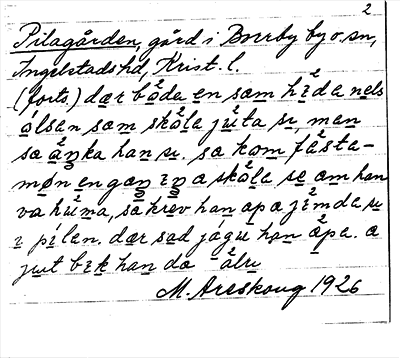 2
Pilagården, gård i Borrby by o. sn,
Ingelstads hd, Krist. l.
(forts.) dær bo̊da en som hída nels
ólsen som skóla jůta sı, men
sæ ånka han sı, sa kom fåsta-
møn en gaŋ ıŋa skóla se om han
va hůma, så krev han apa jímda sı
ı pílan. dær sad jágu han åpa. a
jut bık han da ålrı
M. Areskoug 1926